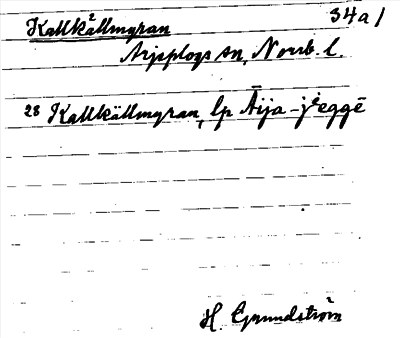 34a1
Kallkällmyran
Arjeplogs sn, Norrb. l.
28 Kallkällmyran, lp Āija-jéggē
H. Grundström